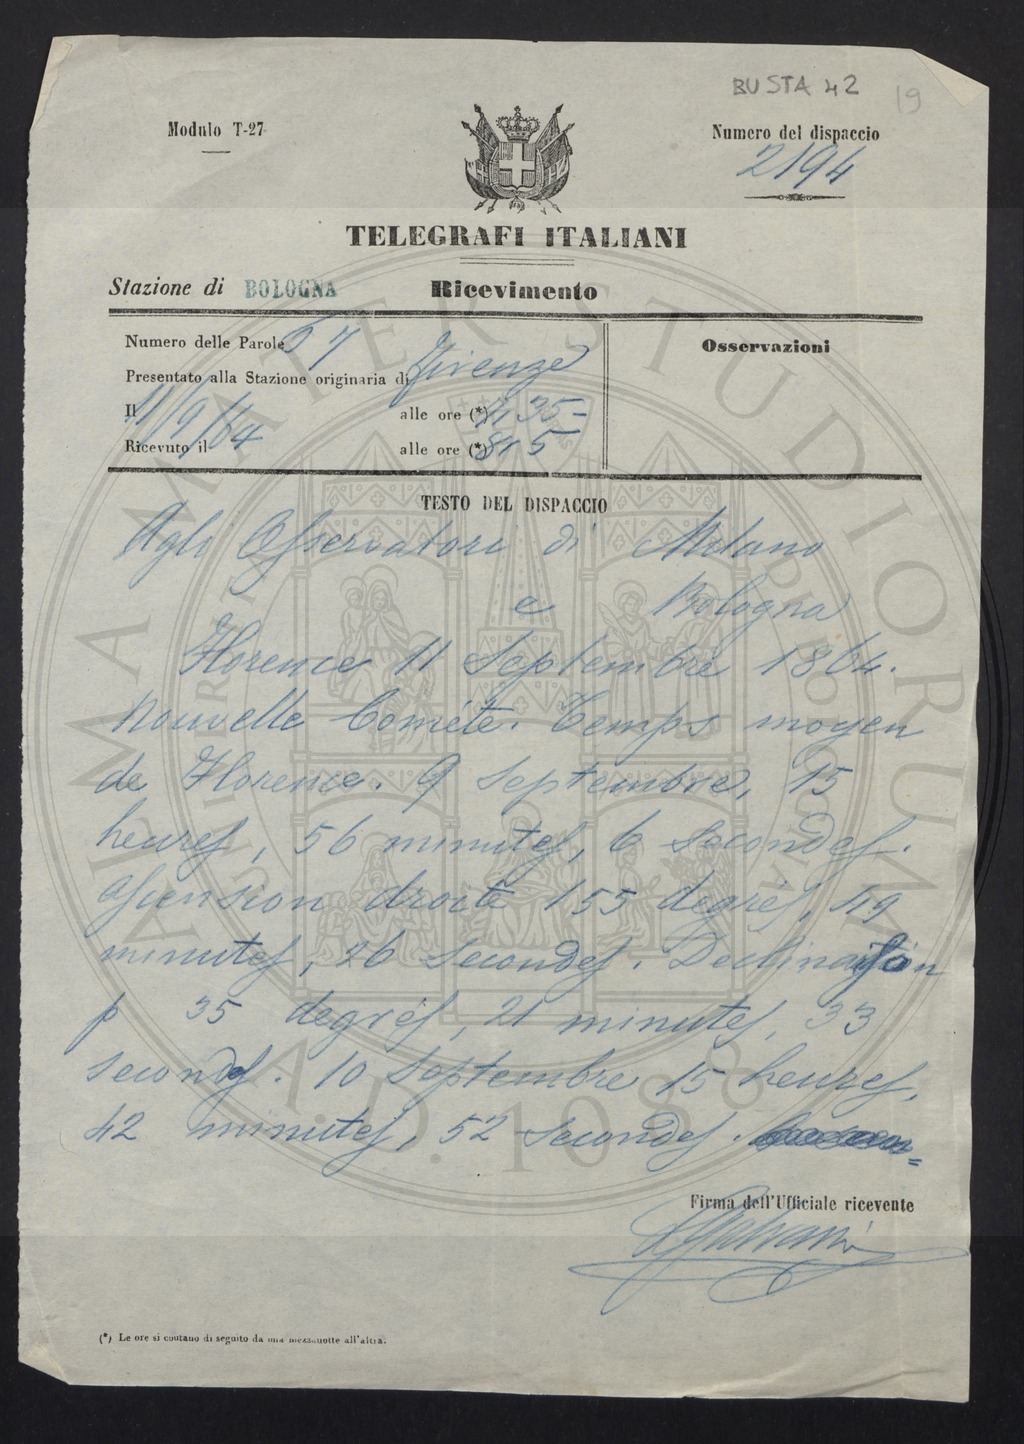 BUSTA 42
19
Modulo T-27
Numero del dispaccio
2194
TELEGRAFI ITALIANI
Stazione di BOLOGNA Ricevimento
Numero delle Parole 57
Presentato alla Stazione originaria di Firenze
Il 11/9/64 alle ore (*) 35=
Ricevuto il alle ore (*) 8 5
Osservazioni
TESTO DEL DISPACCIO
Agli Osservatori di Milano
e Bologna
Florence 11 Septembre 1864.
Nouvelle Comète. Temps moyen
de Florence. 9 Septembre, 15
heures, 56 minutes, 6 Secondes.
Ascension droite 155 degrés, 49
minutes, 26 Secondes. Declinaison
p 35 degrés, 21 minutes, 33
secondes. 10 Septembre 15 heures,
42 minutes, 52 secondes.
Firma dell'Ufficiale ricevente
(*) Le ore si contano di seguito da una mezzanotte all'altra.
ALMA MATER STUDIORUM
A.D. 1088